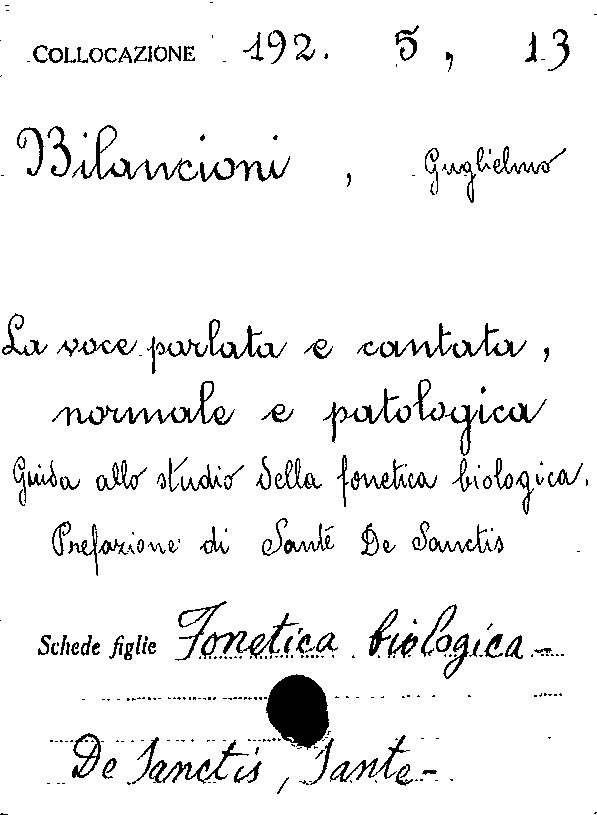 COLLOCAZIONE 192. 5, 13
Bilancioni, Guglielmo
La voce parlata e cantata,
normale e patologica
Guida allo studio della fonetica biologica.
Prefazione di Sante De Sanctis
Schede figlie Fonetica biologica -
De Sanctis, Sante -